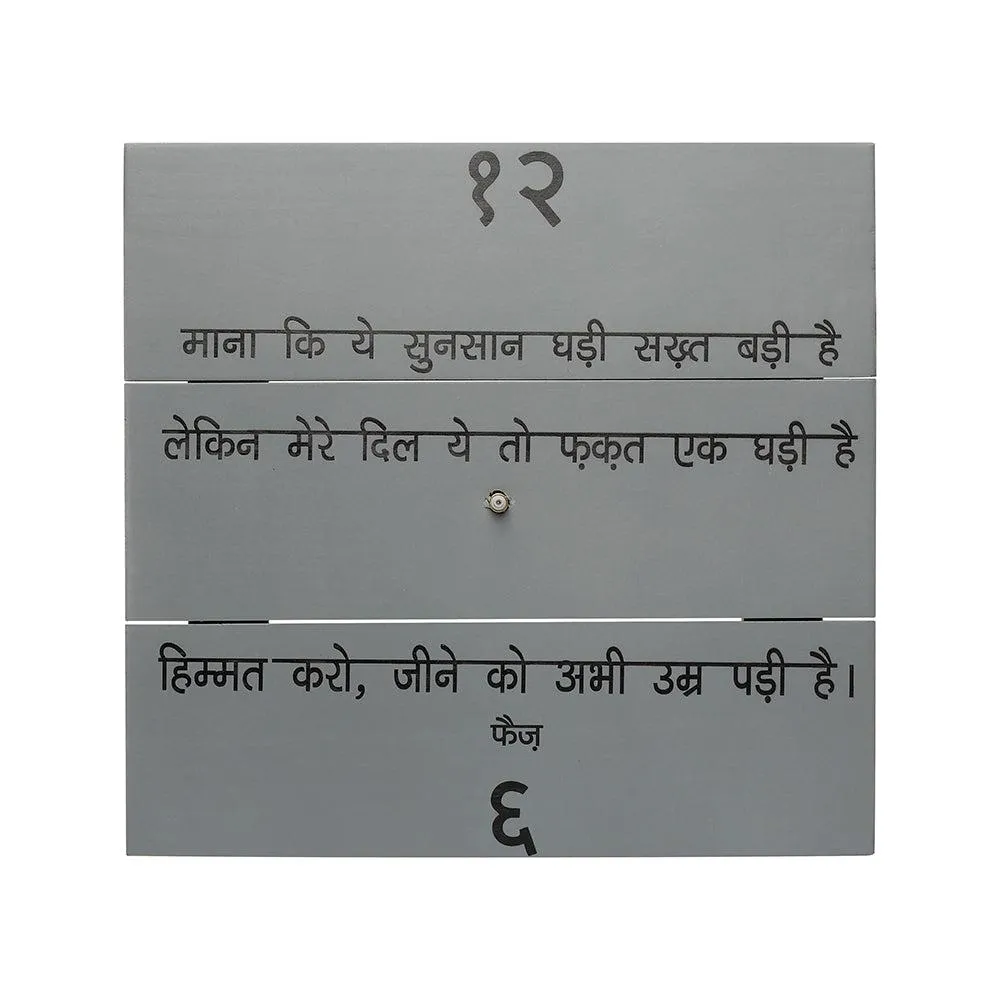 १२
माना कि ये सुनसान घड़ी सख़्त बड़ी है
लेकिन मेरे दिल ये तो फ़क़त एक घड़ी है
हिम्मत करो, जीने को अभी उम्र पड़ी है।
फैज़
६